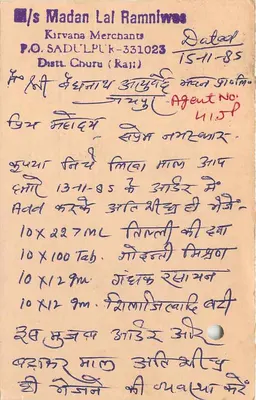 M/s Madan Lal Ramniwas
Kirvana Merchants
P.O. SADULPUR-331023
Distt. Churu (Raj.)
Dated
15-11-85
श्री बैद्यनाथ आयुर्वेद भवन प्रा० लि०
जयपुर
Agent No.
प्रिय महोदय
सप्रेम नमस्कार
कृपया निचे लिखा माल आप
हमारे 13-11-85 के आर्डर में
Add करके अति शीघ्र ही भेजें
10 X 227 ML की दवा
10 X 100 Tab. गोदन्ती मिश्रण
10 X 12 gm. गंधक रसायन
10 X 12 gm. शिलाजित्वादि वटी
इस मुजब आर्डर और
बढाकर माल अति शीघ्र
ही भेजने की व्यवस्था करें